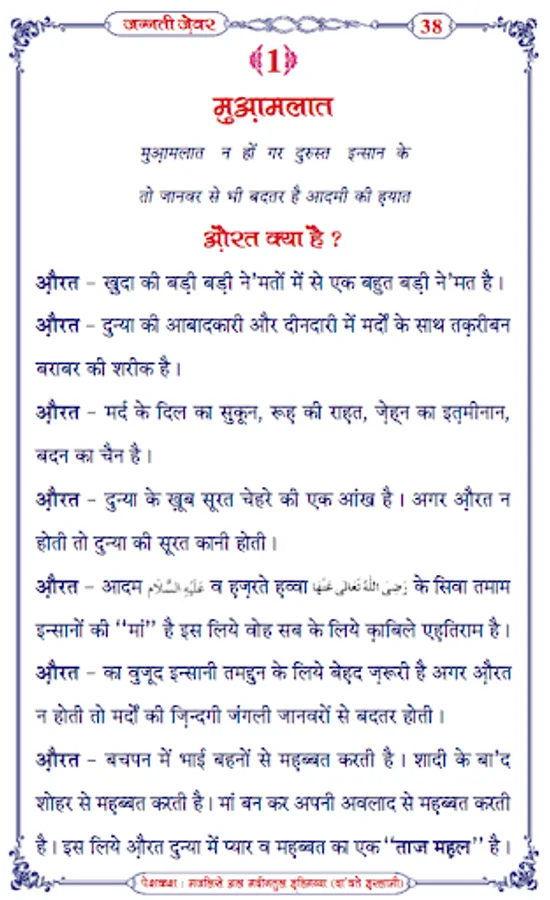 जन्नती ज़ेवर
38
1
मुआ़मलात
मुआ़मलात न हों गर दुरुस्त इन्सान के
तो जानवर से भी बदतर है आदमी की ह़यात
औ़रत क्या है ?
औ़रत – ख़ुदा की बड़ी बड़ी ने'मतों में से एक बहुत बड़ी ने'मत है ।
औ़रत – दुन्या की आबादकारी और दीनदारी में मर्दों के साथ तक़रीबन
बराबर की शरीक है ।
औ़रत – मर्द के दिल का सुकून, रूह़ की राह़त, ज़ेह्न का इत़्मीनान,
बदन का चैन है ।
औ़रत – दुन्या के ख़ूब सूरत चेहरे की एक आंख है । अगर औ़रत न
होती तो दुन्या की सूरत कानी होती ।
औ़रत – आदम عَلَيْهِ السَّلَام व ह़ज़रते ह़व्वा رَضِىَ اللّٰهُ تَعَالٰى عَنْهَا के सिवा तमाम
इन्सानों की “मां” है इस लिये वोह सब के लिये क़ाबिले एह़तिराम है ।
औ़रत – का वुजूद इन्सानी तमद्दुन के लिये बेह़द ज़रूरी है अगर औ़रत
न होती तो मर्दों की ज़िन्दगी जंगली जानवरों से बदतर होती ।
औ़रत – बचपन में भाई बहनों से मह़ब्बत करती है । शादी के बा'द
शोहर से मह़ब्बत करती है । मां बन कर अपनी अवलाद से मह़ब्बत करती
है । इस लिये औ़रत दुन्या में प्यार व मह़ब्बत का एक “ताज मह़ल” है ।
पेशकश : मजलिसे अल मदीनतुल इ़ल्मिय्या (दा'वते इस्लामी)